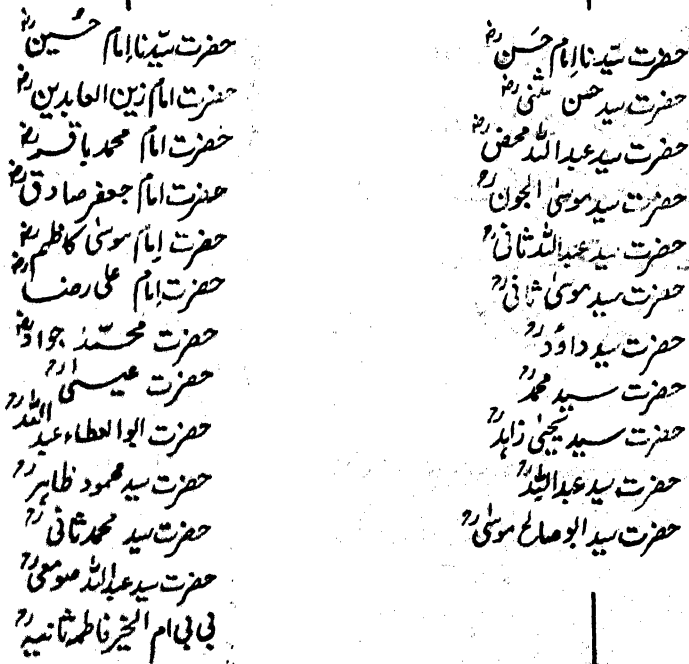 حضرت سیدنا امام حسنؓ
حضرت سید حسن مثنیٰؓ
حضرت سید عبداللہ محضؓ
حضرت سید موسیٰ الجونؒ
حضرت سید عبداللہ ثانیؒ
حضرت سید موسیٰ ثانیؒ
حضرت سید داؤدؒ
حضرت سید محمدؒ
حضرت سید یحییٰ زاہدؒ
حضرت سید عبداللہؒ
حضرت سید ابو صالح موسیٰؒ
حضرت سیّدنا اِمام حُسینؓ
حضرت امام زین العابدینؓ
حضرت امام محمد باقرؓ
حضرت امام جعفر صادقؓ
حضرت اِمام موسیٰ کاظمؓ
حضرت اِمام علی رضاؓ
حضرت محمّد جوادؓ
حضرت عیسیٰؒ
حضرت ابوالعطاء عبداللہؒ
حضرت سید محمود طاہرؒ
حضرت سید محمد ثانیؒ
حضرت سید عبداللہ صومعیؒ
بی بی ام الخیر فاطمہ ثانیہؒ